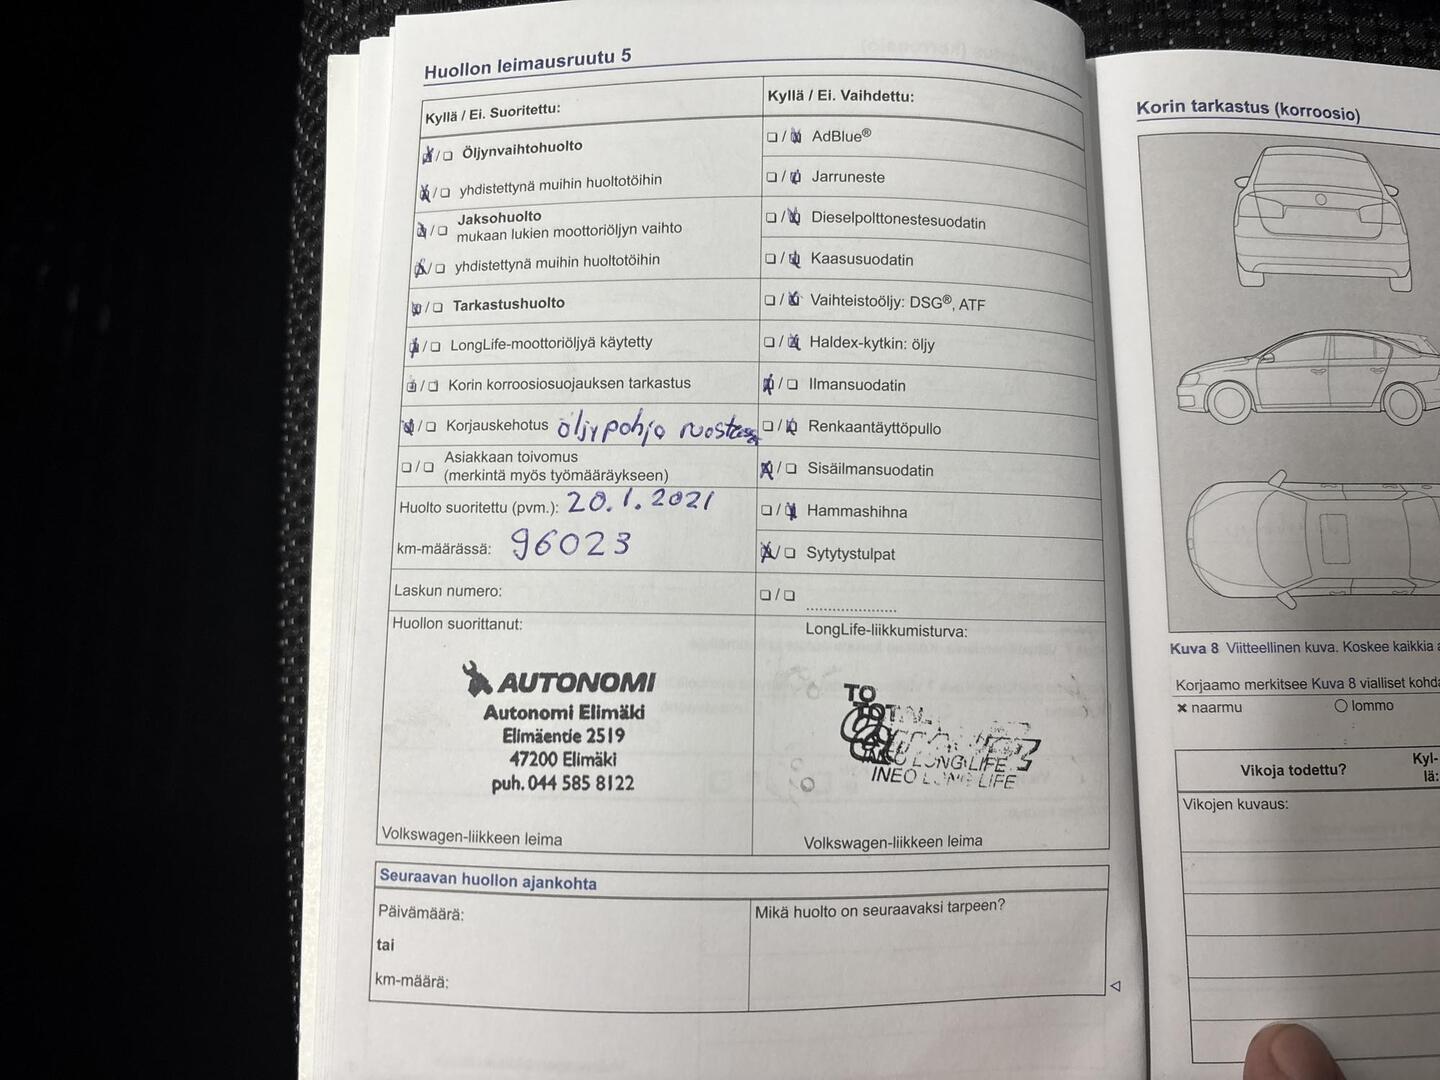 Huollon leimausruutu 5
Kyllä / Ei. Suoritettu:
Öljynvaihtohuolto
yhdistettynä muihin huoltotöihin
Jaksohuolto
mukaan lukien moottoriöljyn vaihto
yhdistettynä muihin huoltotöihin
Tarkastushuolto
LongLife-moottoriöljyä käytetty
Korin korroosiosuojauksen tarkastus
Korjauskehotus öljypohja ruosteessa
Asiakkaan toivomus
(merkintä myös työmääräykseen)
Huolto suoritettu (pvm.): 20.1.2021
km-määrässä: 96023
Laskun numero:
Huollon suorittanut:
AUTONOMI
Autonomi Elimäki
Elimäentie 2519
47200 Elimäki
puh. 044 585 8122
Volkswagen-liikkeen leima
Kyllä / Ei. Vaihdettu:
AdBlue®
Jarruneste
Dieselpolttonestesuodatin
Kaasusuodatin
Vaihteistoöljy: DSG®, ATF
Haldex-kytkin: öljy
Ilmansuodatin
Renkaantäyttöpullo
Sisäilmansuodatin
Hammashihna
Sytytystulpat
LongLife-liikkumisturva:
TO
TOTAL
INEO LONG LIFE
INEO LONG LIFE
Volkswagen-liikkeen leima
Seuraavan huollon ajankohta
Päivämäärä:
tai
km-määrä:
Mikä huolto on seuraavaksi tarpeen?
Korin tarkastus (korroosio)
Kuva 8 Viitteellinen kuva. Koskee kaikkia a
Korjaamo merkitsee Kuva 8 vialliset kohda
× naarmu
○ lommo
Vikoja todettu?
Kyl-
lä:
Vikojen kuvaus: